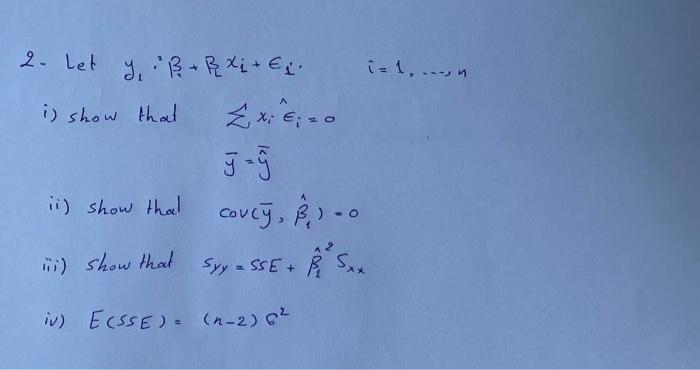 2- Let y₁ = β₀ + β₁ xi + Ei. i = 1, ---, n
i) show that Σ xi Êi = 0
ȳ = ŷ̄
ii) show that cov(ȳ, β̂₁) = 0
iii) show that Syy = SSE + β̂₁² Sxx
iv) E(SSE) = (n-2) σ²